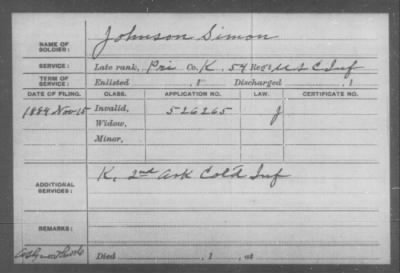 NAME OF SOLDIER: Johnson Simon
SERVICE: Late rank, Pri Co. K. 54 Reg't U S C Inf
TERM OF SERVICE: Enlisted , 1 Discharged , 1
DATE OF FILING. CLASS. APPLICATION NO. LAW. CERTIFICATE NO.
1884 Nov 15 Invalid, 526265 J
Widow,
Minor,
ADDITIONAL SERVICES: K, 2nd Ark Cold Inf
REMARKS:
Died , 1 , at